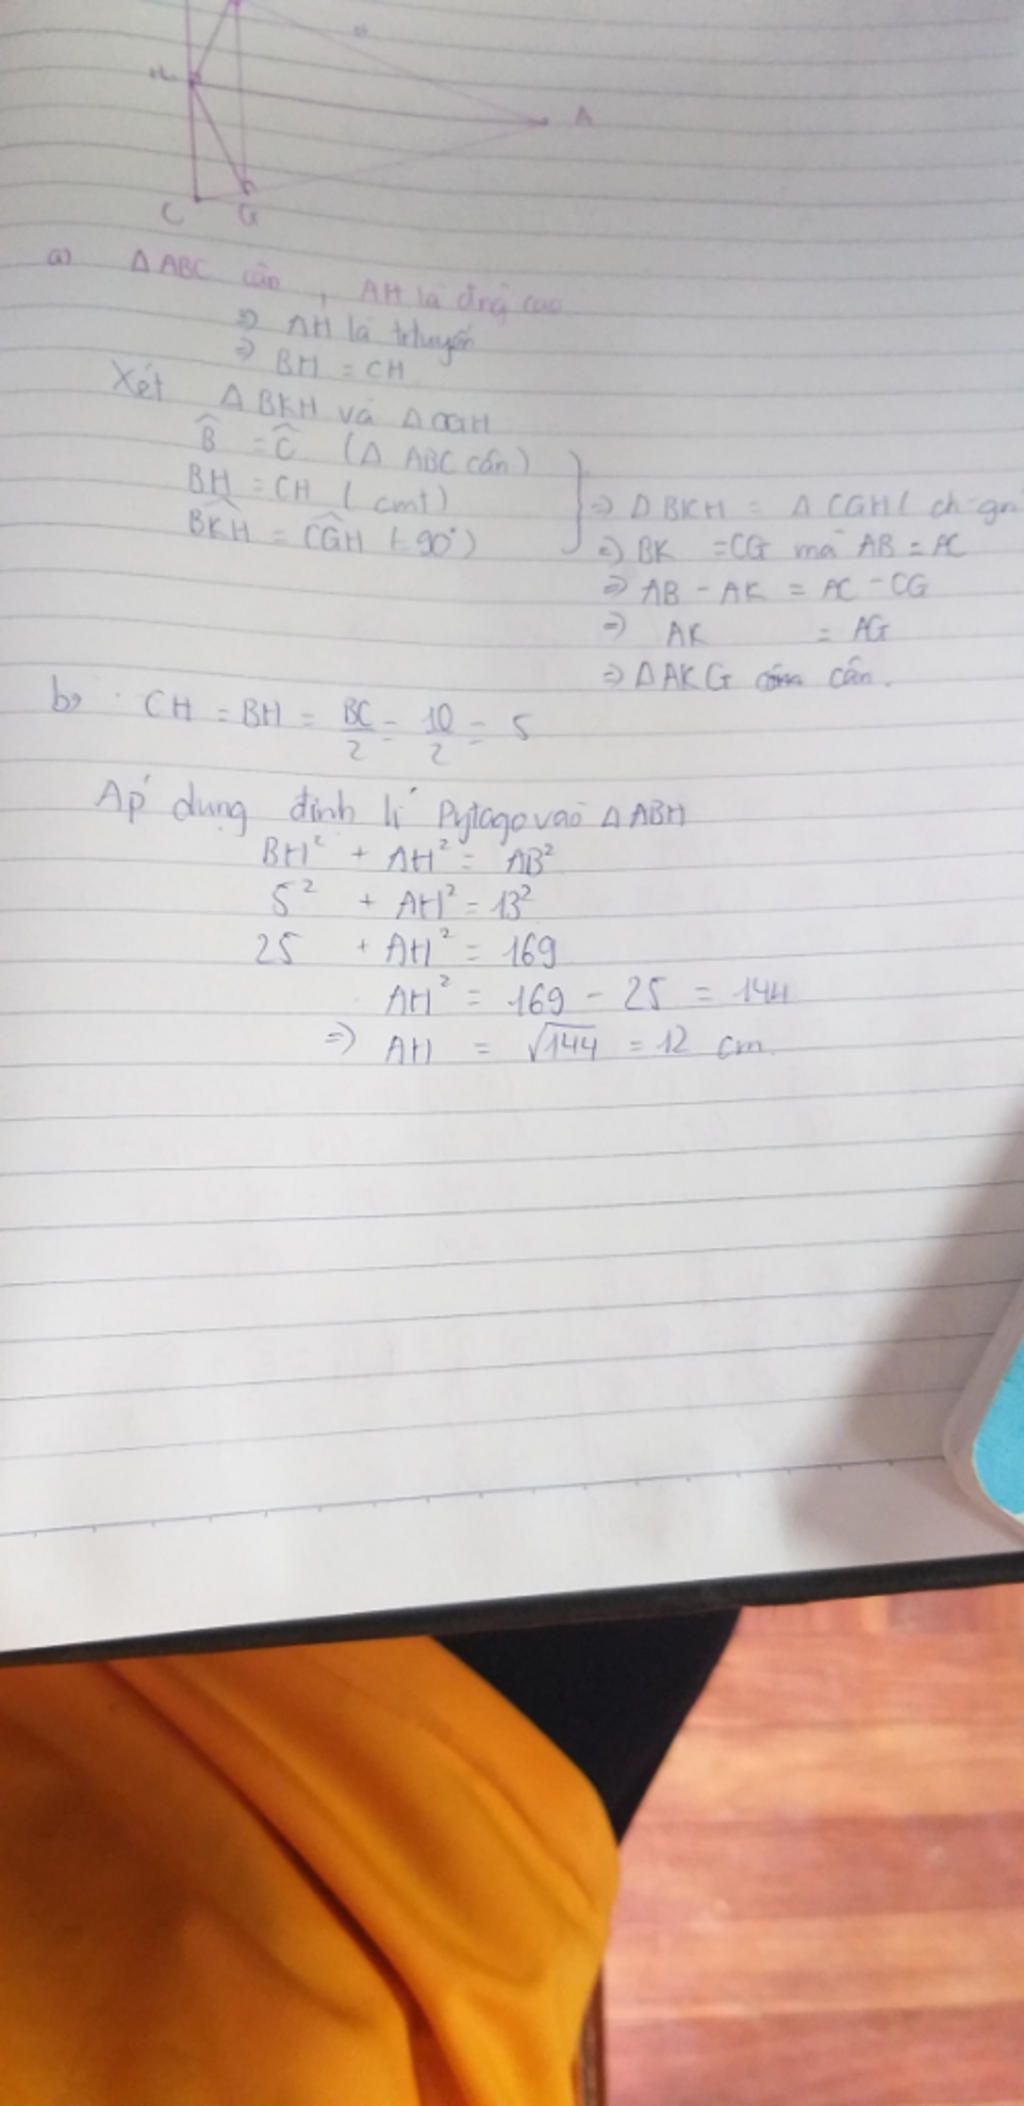 A
C G
a) Δ ABC cân, AH là đng cao
=> AH là trtuyến
=> BH = CH
Xét Δ BKH và Δ CGH
B̂ = Ĉ (Δ ABC cân)
BH = CH (cmt)
BK̂H = CĜH (=90°)
=> Δ BKH = Δ CGH (ch-gn
=> BK = CG mà AB = AC
=> AB - AK = AC - CG
=> AK = AG
=> Δ AKG cân.
b) CH = BH = BC/2 = 10/2 = 5
Áp dụng định lí Pytago vào Δ ABH
BH² + AH² = AB²
5² + AH² = 13²
25 + AH² = 169
AH² = 169 - 25 = 144
=> AH = √144 = 12 cm.